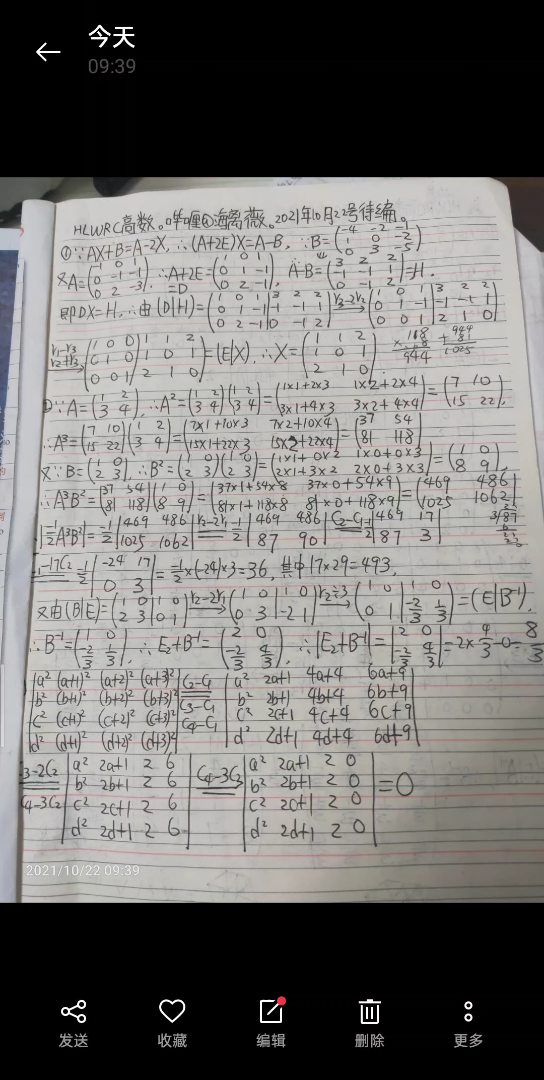 今天
09:39
HLWRC高数。哔哩@海离薇。2021年10月22号待编。
①∵AX+B=A-2X, ∴(A+2E)X=A-B, ∵B=(-4 -2 -1; 1 0 -2; 0 3 -5)
又A=(-1 0 1; 0 -1 -1; 0 2 -3), ∴A+2E=(1 0 1; 0 1 -1; 0 2 -1)=D, A-B=(3 2 2; -1 -1 1; 0 -1 2)=H.
即DX=H, ∴由(D|H)=(1 0 1|3 2 2; 0 1 -1|-1 -1 1; 0 2 -1|0 -1 2) (1 0 1|3 2 2; 0 1 -1|-1 -1 1; 0 0 1|2 1 0)
r1-r3 r2+r3 (1 0 0|1 1 2; 0 1 0|1 0 1; 0 0 1|2 1 0)=(E|X), ∴X=(1 1 2; 1 0 1; 2 1 0). 944 + 81 1025
∵A=(1 2; 3 4), ∴A²=(1 2; 3 4)(1 2; 3 4)=(1×1+2×3 1×2+2×4; 3×1+4×3 3×2+4×4)=(7 10; 15 22),
∴A³=(7 10; 15 22)(1 2; 3 4)=(7×1+10×3 7×2+10×4; 15×1+22×3 15×2+22×4)=(37 54; 81 118)
又∵B=(1 0; 2 3), ∴B²=(1 0; 2 3)(1 0; 2 3)=(1×1+0×2 1×0+0×3; 2×1+3×2 2×0+3×3)=(1 0; 8 9),
∴A³B²=(37 54; 81 118)(1 0; 8 9)=(37×1+54×8 37×0+54×9; 81×1+118×8 81×0+118×9)=(469 486; 1025 1062)
|-1/2A³B²|=-1/2|469 486; 1025 1062| r2-2r1 -1/2|469 486; 87 90| C2-C1 -1/2|469 17; 87 3|
C1-17C2 -1/2|-24 17; 0 3|=-1/2×(-24)×3=36, 其中17×29=493,
又由(B|E)=(1 0|1 0; 2 3|0 1) r2-2r1 (1 0|1 0; 0 3|-2 1) r2÷3 (1 0|1 0; 0 1|-2/3 1/3)=(E|B⁻¹),
∴B⁻¹=(1 0; -2/3 1/3), ∴E₂+B⁻¹=(2 0; -2/3 4/3), ∴|E₂+B⁻¹|=|2 0; -2/3 4/3|=2×4/3-0=8/3
|a² (a+1)² (a+2)² (a+3)²| C2-C1 |a² 2a+1 4a+4 6a+9|
|b² (b+1)² (b+2)² (b+3)²| C3-C1 |b² 2b+1 4b+4 6b+9|
|c² (c+1)² (c+2)² (c+3)²| C4-C1 |c² 2c+1 4c+4 6c+9|
|d² (d+1)² (d+2)² (d+3)²| |d² 2d+1 4d+4 6d+9|
3-2C2 |a² 2a+1 2 6| C4-3C3 |a² 2a+1 2 0|
C4-3C2 |b² 2b+1 2 6| |b² 2b+1 2 0| =0
|c² 2c+1 2 6| |c² 2c+1 2 0|
|d² 2d+1 2 6| |d² 2d+1 2 0|
2021/10/22 09:39
发送 收藏 编辑 删除 更多